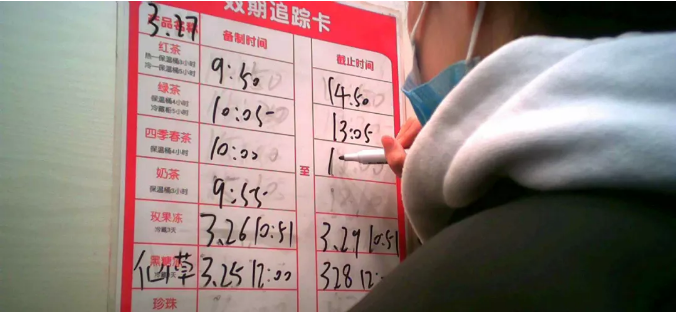 效期追踪卡
产品名称 3.27 备制时间 截止时间
红茶 9:50 14:50
热一保温桶5小时
冷一保温桶6小时
绿茶 10:05 13:05
保温桶4小时
四季春茶 10:00 1
保温桶4小时
至
奶茶 9:55
玫果冻 3.26 10:51 3.29 10:51
冷藏3天
仙草 3.25 12:00 328 12:
珍珠